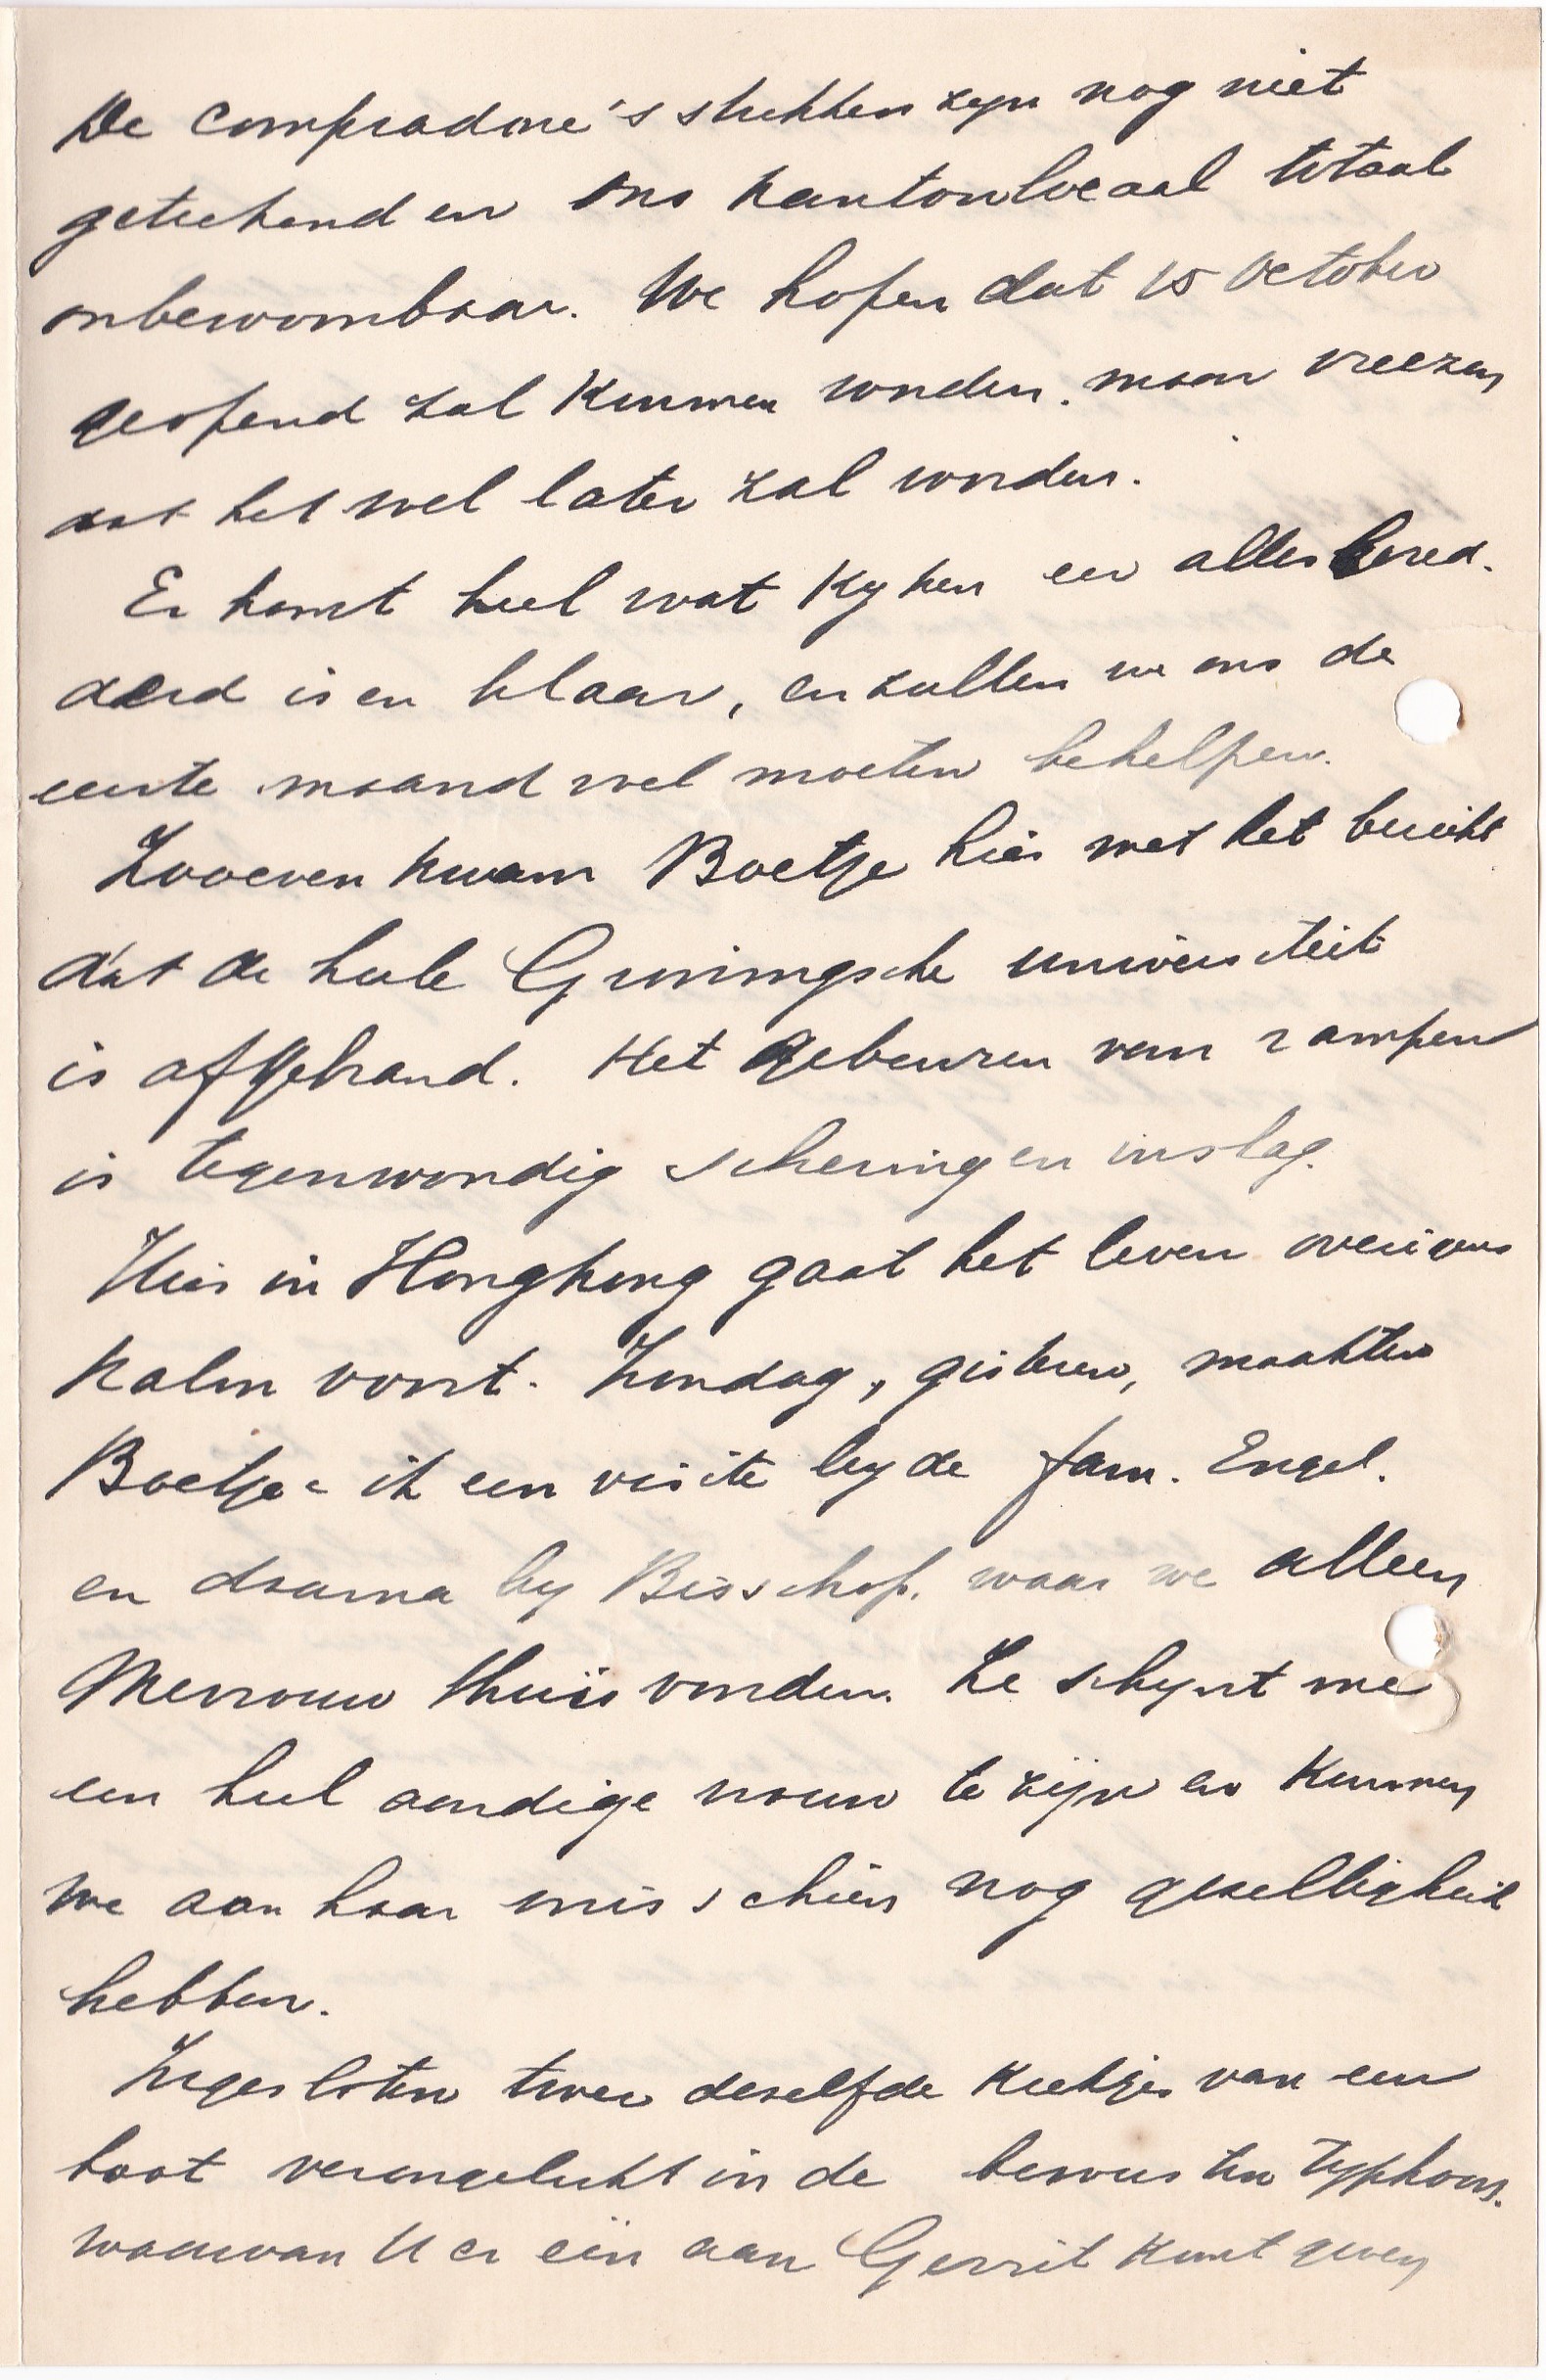 De compradore's stukken zyn nog niet
geteekend en ons kantoorlocaal totaal
onbewoonbaar. We hopen dat 15 October
geopend zal kunnen worden. maar vreezen
dat het wel later zal worden.
Er komt heel wat kyken eer alles bered.
derd is en klaar, en zullen we ons de
eerste maand wel moeten behelpen.
Zooeven kwam Boetje hier met het bericht
dat de heele Groningsche universiteit
is afgebrand. Het gebeuren van rampen
is tegenwoordig schering en inslag.
Hier in Hongkong gaat het leven overigens
kalm voort. Zondag, gisteren, maakten
Boetje & ik een visite by de fam. Engel.
en daarna by Bisschop. waar we alleen
Mevrouw thuis vonden. Ze schynt me
een heel aardige vrouw te zijn en kunnen
we aan haar misschien nog gezelligheid
hebben.
Ingesloten twee dezelfde kiekjes van een
boot verongelukt in de bewusten typhoon.
waarvan U er eën aan Gerrit kunt geven